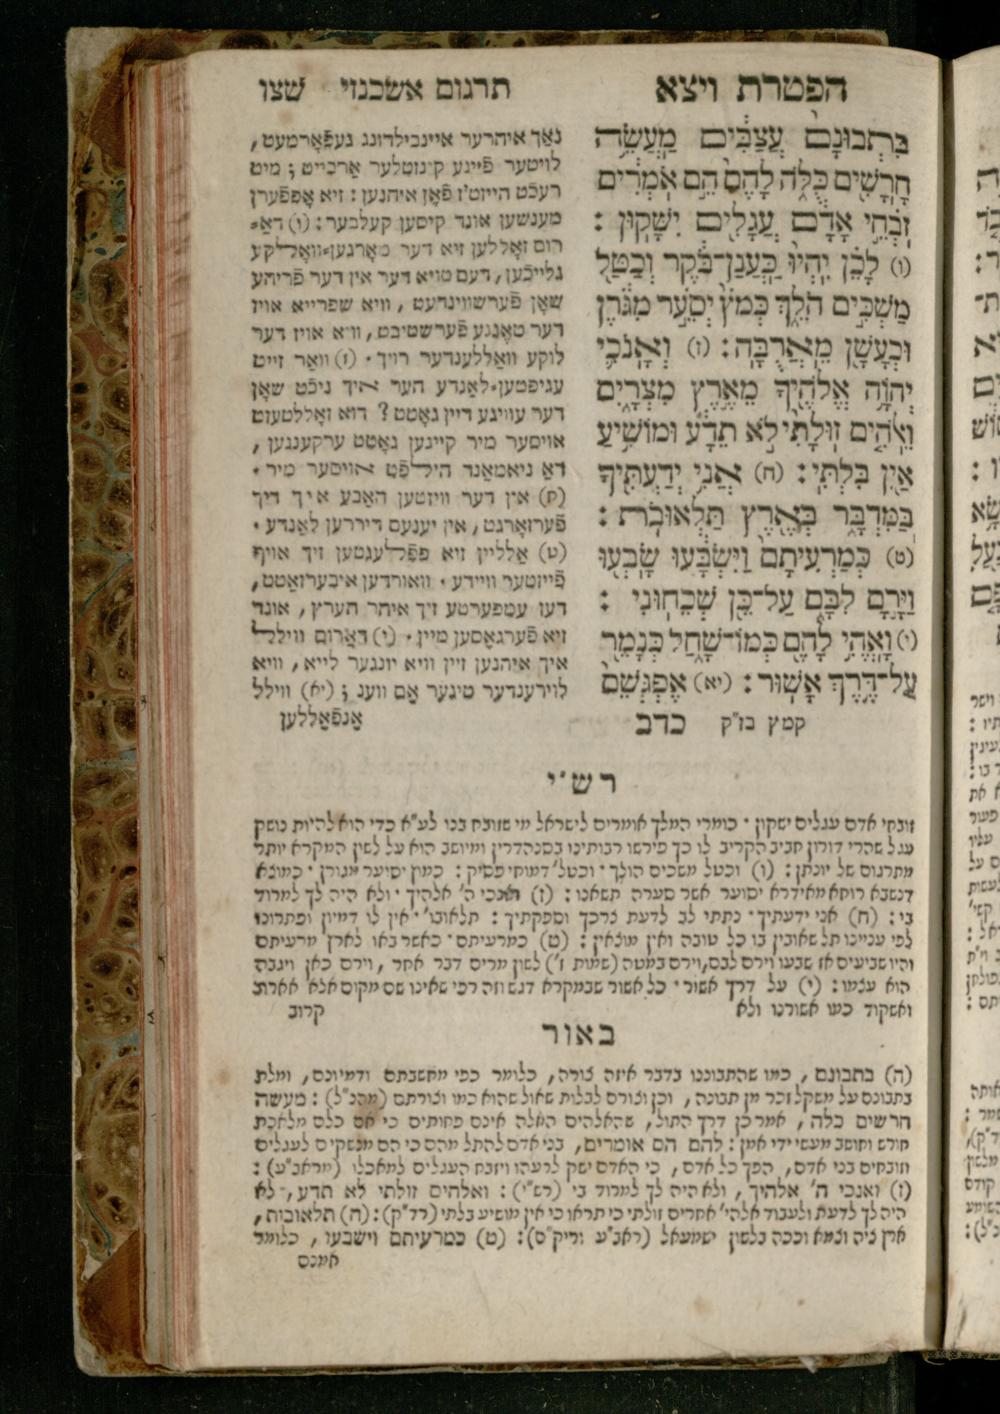 הפטרת ויצא
תרגום אשכנזי שצו
כִּתְבוּנָם עֲצַבִּים מַעֲשֵׂה
חָרָשִׁים כֻּלֹּה לָהֶם הֵם אֹמְרִים
זֹבְחֵי אָדָם עֲגָלִים יִשָּׁקוּן :
(ו) לָכֵן יִהְיוּ כַּעֲנַן־בֹּקֶר וְכַטַּל
מַשְׁכִּים הֹלֵךְ כְּמֹץ יְסֹעֵר מִגֹּרֶן
וּכְעָשָׁן מֵאֲרֻבָּה : (ז) וְאָנֹכִי
יְהוָֹה אֱלֹהֶיךָ מֵאֶרֶץ מִצְרָיִם
וֵאלֹהִים זוּלָתִי לֹא תֵדָע וּמוֹשִׁיעַ
אַיִן בִּלְתִּי : (ח) אֲנִי יְדַעְתִּיךָ
בַּמִּדְבָּר בְּאֶרֶץ תַּלְאוּבֹת :
(ט) כְּמַרְעִיתָם וַיִּשְׂבָּעוּ שָׂבְעוּ
וַיָּרָם לִבָּם עַל־כֵּן שְׁכֵחוּנִי :
(י) וָאֱהִי לָהֶם כְּמוֹ־שָׁחַל כְּנָמֵר
עַל־דֶּרֶךְ אָשׁוּר : (יא) אֶפְגְּשֵׁם
קמץ בז"ק כדב
נאַך איהרער איינבילדונג געפֿאָרמעט ,
לויטער פֿיינע קינסטלער אַרבייט ; מיט
רעכֿט הייסט'ז פֿאָן איהנען : זיא אָפּפֿערן
מענשען אונד קיסען קעלבער : (ו) דאַ=
רום זאָללען זיא דער מאָרגען=וואָלקע
גלייכֿען , דעם טויא דער אין דער פֿריהע
שאָן פֿערשווינדעט , וויא שפרייא אויז
דער טאֶננע פֿערשטיבט , וויא אויז דער
לוקע וואַללענדער רויך . (ז) וואַר זייט
עגיפטען=לאַנדע הער איך ניכֿט שאָן
דער עוויגע דיין גאָטט ? דוא זאָללטעסט
אויסער מיר קיינען גאָטט ערקעננען ,
דאַ ניאמאַנד הילפֿט אויסער מיר .
(ח) אין דער וויסטען האַבע איך דיך
פֿערזאָרגט , אין יענעם דיררען לאַנדע .
(ט) אַלליין זיא פפֿלעגטען זיך אויף
פֿייסטער וויידע . וואורדען איבערזאַטט ,
דען עמפערטע זיך איהר הערץ , אונד
זיא פֿערגאַסען מיין . (י) דאַרום ווילל
איך איהנען זיין וויא יונגער לייא , וויא
לויערנדער טיגער אַם וועג ; (יא) ווילל
אַנפֿאַללען
רש"י
זובחי אדם עגלים ישקון . כומרי המלך אומרים לישראל מי שזובח בנו לע"א כדי הוא להיות נושק
עגל שהרי דורון חביב הקריב לו כך פירשו רבותינו בסנהדרין ומיושב הוא על לשון המקרא יותר
מתרגום של יונתן : (ו) וכטל משכים הולך . וכטל דמוחי פסיק : כמוץ יסוער מגורן . כמוצא
דנשבא רוחא מאידרא יסוער אשר סערה תשאנו : (ז) ואנכי ה' אלהיך . ולא היה לך למרוד
בי : (ח) אני ידעתיך . נתתי לב לדעת צרכך וספקתיך : תלאובו' . אין לו דמיון ופתרונו
לפי עניינו תל שאובין בו כל טובה ואין מוצאין : (ט) כמרעיתם . כאשר באו לארץ מרעיתם
והיו שביעים אז שבעו וירם לבם , וירם במטה (שמות ז') לשון מרים דבר אחר , וירם כאן ויגבה
הוא עצמו : (י) על דרך אשור . כל אשור שבמקרא דגש וזה רפי שאינו שם מקום אלא אארוב
ואשקוד כמו אשורנו ולא קרוב
באור
(ה) כתבונם , כמו שהתבוננו בדבר איזה צורה , כלומר כפי מחשבתם ודמיונם , ומלת
כתבונם על משקל זכר מן תבונה , וכן וצורם לבלות שאול שהוא כמו וצורתם (מהנ"ל) : מעשה
חרשים כלה , אמר כן דרך התול , שהאלהים האלה אינם פחותים כי אם כלם מלאכת
חורש וחושב מעשי ידי אמן : להם הם אומרים , בני אדם להתל מהם כי הם מנשקים לעגלים
וזובחים בני אדם , הפך כל אדם , כי האדם ישק לרעהו ויזבח העגלים למאכלו (מראב"ע) :
(ז) ואנכי ה' אלהיך , ולא היה לך למרוד בי (רש"י) : ואלהים זולתי לא תדע , לא
היה לך לדעת ולעבוד אלהי' אחרים זולתי כי תראו כי אין מושיע בלתי (רד"ק) : (ח) תלאובות ,
ארץ ציה וצמא וככה בלשון ישמעאל (ראב"ע וריק"ם) : (ט) כמרעיתם וישבעו , כלומר
אמנם